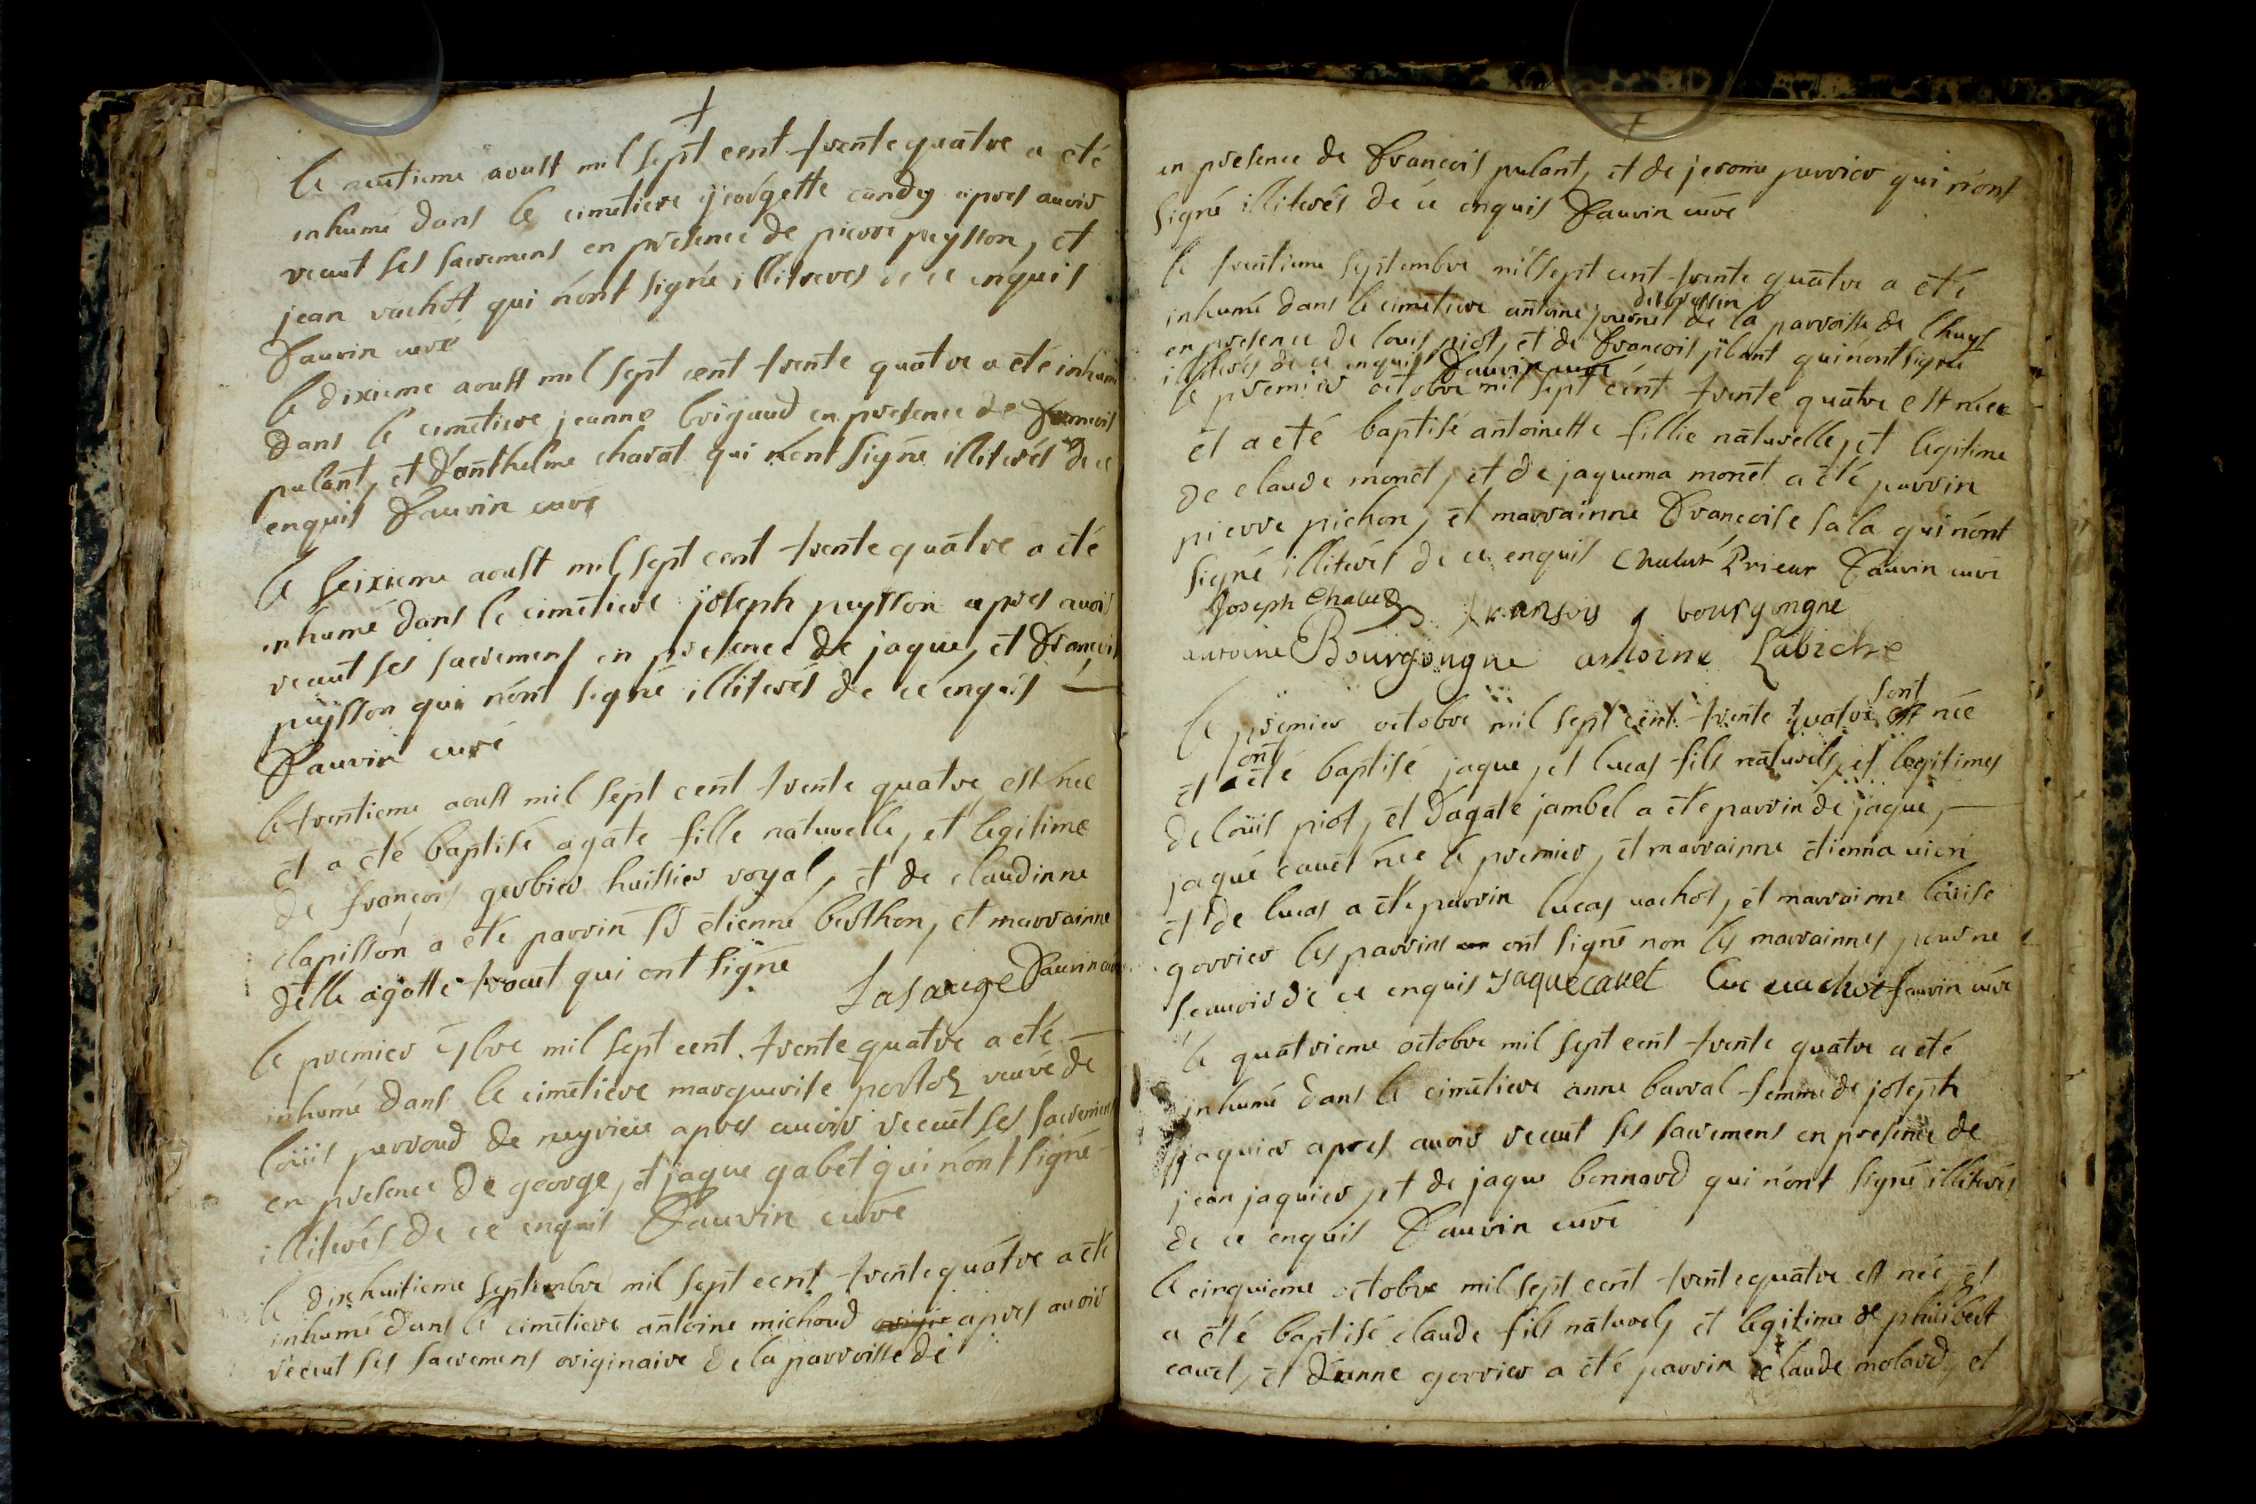 le neuvieme aoust mil sept cent trente quatre a eté
inhumé dans le cimetiere georgette candy apres avoir
receut ses sacremens en presence de pierre peysson, et
jean vachot qui n'ont signé illiteres de ce enquis
Fauvin curé
le dixieme aoust mil sept cent trente quatre a eté inhumé
dans le cimetiere jeanne brigaud en presence de francois
pulant, et d'anthelme charat qui n'ont signé illiterés de ce
enquis Fauvin curé
le seixieme aoust mil sept cent trente quatre a eté
inhumé dans le cimetiere joseph peysson apres avoir
receut ses sacremens en presence de jaque, et francois
peysson qui n'ont signé illiterés de ce enquis
Fauvin curé
le trentieme aoust mil sept cent trente quatre est nee
et a eté baptisé agate fille naturelle, et legitime
de françois gerbier huissier royal, et de claudinne
clapisson a eté parrin Sr etienne berthon, et marrainne
delle agatte qui ont signé Fauvin curé
le premier 7bre mil sept cent trente quatre a eté
inhumé dans le cimetiere marguerite veuve de
loüis perroud de meyrieu apres avoir receut ses sacremens
en presence de george, et jaque gabet qui n'ont signé
illiterés de ce enquis Fauvin curé
le dixhuitieme septembre mil sept cent trente quatre a eté
inhumé dans le cimetiere antoine michoud apres avoir
receut ses sacremens originaire de la parroisse de
en presence de francois pulant, et de jerome perrier qui n'ont
signé illiterés de ce enquis Fauvin curé
le trentieme septembre mil sept cent trente quatre a eté
inhumé dans le cimetiere antoine journet de la parroisse de lhuys
en presence de louis piot, et de francois pulant qui n'ont signé
illiterés de ce enquis Fauvin curé
le premier octobre mil sept cent trente quatre est née
et a eté baptisé antoinette fillie naturelle, et legitime
de claude monet, et de jaquema monet a eté parrin
pierre pichon, et marrainne francoise sala qui n'ont
signé illiterés de ce enquis Prieur Fauvin curé
Joseph fransois bourgongne
antoine Bourgongne antoine Labiche
le premier octobre mil sept cent trente quatre sont née
et ont eté baptisé jaque, et lucas fils naturels, et legitimes
de loüis piot, et d'agate jambel a eté parrin de jaque,
jaque cauet née le premier, et marrainne etienna
et de lucas a eté parrin lucas vachot, et marrainne loüise
gorrier les parrins ont signé non les marrainnes pour ne
scauoir de ce enquis Jaque cauet Luc uachot Fauvin curé
le quatrieme octobre mil sept cent trente quatre a eté
inhumé dans le cimetiere anne barral femme de joseph
jaquier apres avoir receut ses sacremens en presence de
jean jaquier, et de jaque bonnard qui n'ont signé illiterés
de ce enquis Fauvin curé
le cinquieme octobre mil sept cent trente quatre est née, et
a eté baptisé claude fils naturel, et legitime de philibert
cauet, et d'anne gorrier a eté parrin claude molard, et